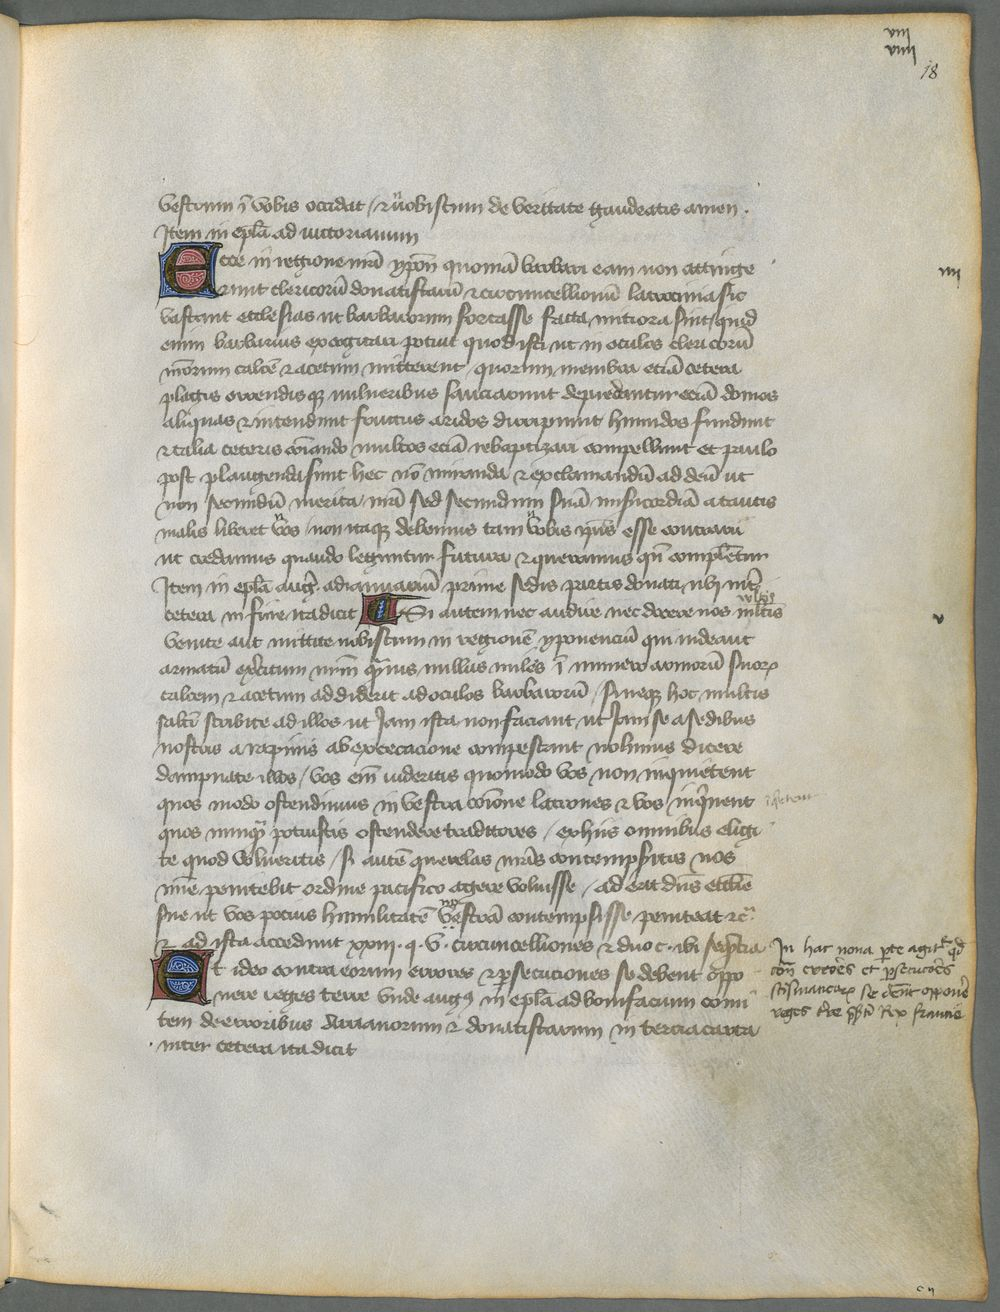 viii
viiii
18
vestrum ī vobis occidat / ⁊ ṅ vobiscum de veritate gaudeatis amen .
Item in epl̄a ad victorianum
Ecce in regione nr̄a ypon̄ quoniā barbari eam non attinge
runt clericorū donatistarū ⁊ circuncellionū latrocinia sic
vastant ecclesias ut barbarorum fortasse facta mitiora sint / quid
enim barbarius excogitari potuit quod isti ut in oculos clericorū
nr̄orum calcē ⁊ acetum mitterent / quorum membra eciā cetera
plagis orrendis qꝫ vulneribus sauciarunt depredantur eciā domos
aliquas ⁊ incendunt fructus aridos diripiunt humidos fundunt
⁊ talia ceteris cōīando multos eciā rebaptizari compellunt et paulo
post plangenda sunt hec nō miranda ⁊ exclamandū ad deū ut
non secundū merita nr̄a sed secundum suā misericordiā a tantis
malis liberet nos / non itaqꝫ debemus tam nobis ip̄is esse contrarii
ut credamus quando leguntur futura ⁊ queramus qn̄ complētur
Item in epl̄a aug. ad ianuariū prime sedis partis donati ubi int̄
cetera in fine ita dicit Si autem nec audire nec docere nos vultis
venite aut mittite nobiscum in regionē yponenciū qui videant
armatū exercitum vr̄m quāvis nullus miles ī numero armorū suorꝝ
calcem ⁊ acetum addiderit ad oculos barbarorū / sineqꝫ hoc multis
saltī scribite ad illos ut Jam ista non faciant ut Jam se a sedibus
nostris a rapinis ab excecacione compescant nolumus dicere
dampnate illos / vos eīm videritis quomodo vos non inquietent
quos modo ostendimus in vestra cōīone latrones ⁊ nos inq̄nent
quos nunqꝫ potuistis ostendere traditores / ex hiis omnibus eligi
te quod volueritis / si autē querelas nr̄as contempsitis nos
mīe penitebit ordine pacifico agere voluisse / ad erit dn̄s eccl̄ie
sue ut vos pocius humilitatē nr̄ vestrā contempsisse peniteat ⁊c̄
⁊ ad ista accedunt xxiii . q . v . circuncelliones ⁊ duo c . ibi seq̄ncia
Et ideo contra eorum errores ⁊ p̱secuciones se debent oppo
nere reges terre unde augꝰ in epl̄a ad bonifacium comi
tem de erroribus Arrianorum ⁊ donatistarum in tercia carta
inter cetera ita dicit
In hac nona p̱te agitʳ qd̄
con̄ errores et p̱secucōēs
scismaticorꝝ se dēnt opponē
reges t̄re sp̄āl̄r rex francie
iiii
v